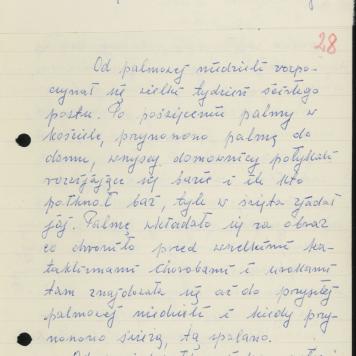 28
Od palmowej niedzieli rozpo-
czynał się wielki tydzień ścisłego
postu. Po poświęceniu palmy w
kościele, przynoszono palmę do
domu, wszyscy domownicy połykali
rozwijające się bazie i ile kto
połknoł baź, tyle w święta zjadał
jaj. Palmę wkładało się za obraz
co chroniło przed wszelkimi ka-
taklizmami chorobami i urokami
tam znajdowała się aż do przyszłej
palmowej niedzieli i kiedy przy-
noszono świeżą, tą spalano.